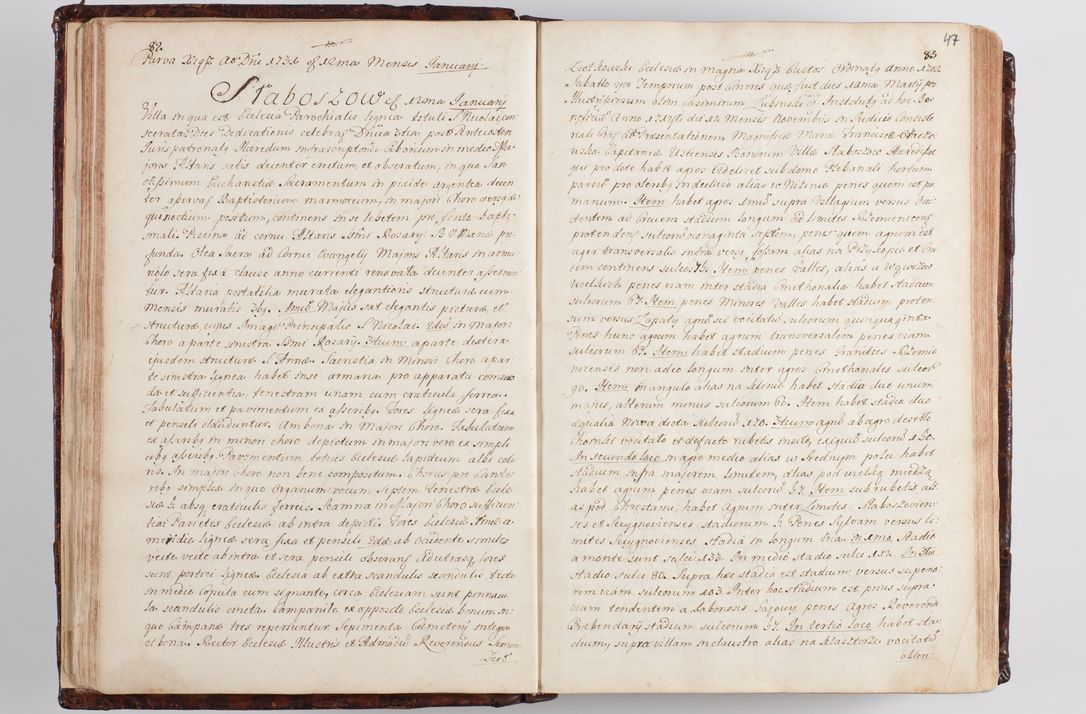 82.
Parva Xiąż Ao Dni 1731 et 12ma Mensis Januarij
Staboszow et 12ma Januarij
Villa in qua est Ecclesia Parochialis lignea tituli S Nicolai con
secrata. Dies Dedicationis celebrat Dnica 2tia post Pentecosten
Juris patronatq Haeredum infrascriptorum Ciborium in medio Ma
joris Altaris satis decenter erectum, et obseratum, in quo San
ctissimum Eucharistiae Sacramentum in pixide argentea decen
ter asservat Baptisterium marmoreum, in majori Choro versq ae
quinoctium positum, continens in se lebetem pro fonte Bapti
smali Piscina ad cornu Altaris Ssmi Rosarij B V Mariae pro
funda. Olea Sacra ad Cornu Evangelij Majoris Altaris in armar
iolo sera fixa clauso anno currenti renovata decenter asservan
tur. Altaria portatilia murata elegantioris structurae cum
mensis muratis 3q. 1mum Majus sat elegantis picturae, et
structurae cujus Imago Principalis S Nicolai. 2dum in Majori
Choro a parte sinistra Ssmi Rosarij. 3tium a parte dextera
ejusdem structurae S Annae. Sacristia in Minori Choro a par
te sinistra lignea habet in se armaria pro apparatu commo
da et sufficientia, fenestram unam cum craticula ferrea.
Tabulatum et pavimentum ex asserib. Fores ligneae sera fixa
et pensili clauduntur. Ambona in Majori Choro. Tabulatum
ex asserib in minori choro depictum in majori vero ex simpli
cibq asserib. Pavimentum totius Ecclesiae lapideum albi colo
ris. In majori Choro non bene compositum. Chorus pro Canto
ribq simplex in quo Organum vocum septem. Fenestrae Eccle
siae 3. absq craticulis ferreis. Scamna in Majori Choro sufficien
tia Parietes Ecclesiae ab intra depicti. Fores Ecclesiae 1mae a me
ridie ligneae sera fixa et pensili 2dae ab Occidente similes
vecte ab intra et sera pensili obserant. Ad utrasq fores
sunt portici ligneae. Ecclesia ab extra scandulis scandulis tecta
in medio copula cum signante, circa Ecclesiam sunt pinnacu
la scandulis cincta. Campanile ex opposito Ecclesiae ligneum in
quo Campanae tres reperiuntur Sepimenta Caemeterij integra
et bona. Rector Ecclesiae Illustris et Admodum Reverendus Simon
Żoł
47
83
Żołkowski Ecclesiae in magna Xiąż Custos Ordinatq anno 1702
Sabbatto 4or Temporum post Cineres quae fuit dies 11ma Martij per
Illustrissimum olim Casimirum Łubinski Institutq ad hoc Be
neficium Anno 1 die 12 Mensis Novembris in Judicio Consisto
riali Crac ad Praesentationem Magnificae Mariae Franciscae
Capitaneae Ustiensis Bonorum Villae Staboszow Haeredisset
qui pro dote habet agros videlicet sub domo Plebanali hortum
parvum protensum in declivio alias w Nizinie penes quem est po
marium. Item habet agros 1mum supra Villagium versus Occi
dentem ad Crucem stadium longum ad limites
protendens sulcorum nonaginta septem, penes quem agrum est
ager transversalis infra versq fossam alias na Przykopie et Cru
cem continens sulcos 72. Item penes Valles, alias u Wąwozow
wielkich penes viam inter stadia Cmethonalia habet stadium
sulcorum 67. Item penes Minores Valles habet stadium proten
sum versus Zapaty agrum sic vocitatum sulcorum quinquaginta
Penes hunc agrum habet agrum transversalem penes viam
sulcorum 63. Item habet stadium penes Granities
non adeo longum inter agros Cmethonales sulcor
90. Item triangulo alias na klinie habet stadia duo unum
majus, alterum minus sulcorum 60. Item habet stadia duo
aequalia Niwa dicta sulcorum 120. Iterum agrum ab agro deserto
Chorzki vocitato et defacto rubetis insito, exiguum sulcorum 130.
In secundo loco in agro medio alias w Srednym polu habet
stadium infra majorem limitem, alias pod wielką miedzą
habet agrum penes viam sulcorum 67. Item sub rubetis ali
as pod Chrostami, habet agrum inter Limites Staboszovien
ses et Scuygnovienses, stadiorum 3. Penes Sylvam versus li
mites Scuygnovienses stadia in longum tria. in 1mo Stadio
a monte sunt sulci 133. In medio stadio sulci 112. In 3tio
stadio sulci 80. Supra haec stadia est stadium versus superio
rem viam sulcorum 103. Inter hoc stadium est prius supra
viam tendentem a Laboross Gajowy penes Agros Reverendi
Prebendarij stadium sulcorum 67. In tertio loco habet sta
dium, supra villam in claustro alias na klasztorze vocitatum
oblon: